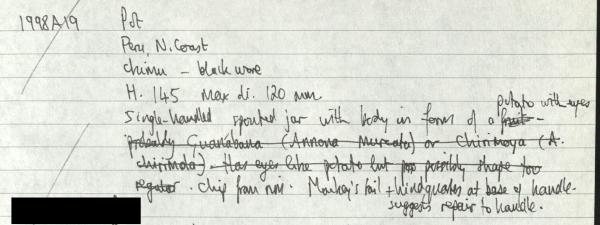 1998A19 Pot
Peru, N. Coast
Chimu - black ware
H. 145 Max di. 120 mm.
Single-handled spouted jar with body in form of a fruit - potato with eyes
probably Guanabana (Annona Muricata) or Chirimoya (A.
chirimola). Has eyes like potato but pos possibly shape too
regular. Chip from rim. Monkey's tail + hindquates at base of handle.
suggests repair to handle.